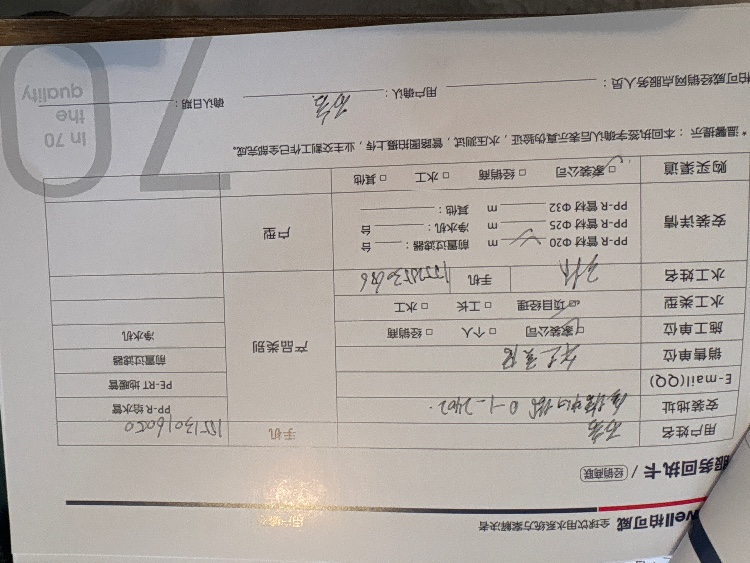 well柏可威 全球饮用水系统方案解决者
服务回执卡 / 经销商联
用户姓名 手机 15513016050
安装地址 0-1-2402 PP-R给水管
E-mail(QQ) PE-RT地暖管
销售单位 前置过滤器
施工单位 □家装公司 □个人 □经销商 产品类别 净水机
水工类型 □项目经理 □工长 □水工
水工姓名 手机
安装详情 PP-R 管材 Φ20 m 前置过滤器： 台 户型
PP-R 管材 Φ25 m 净水机： 台
PP-R 管材 Φ32 m 其他：
购买渠道 □家装公司 □经销商 □水工 □其他
*温馨提示：本回执签字确认后表示真伪验证，水压测试，管路图拍摄上传，业主交割工作已全部完成。
柏可威经销网点服务人员： 用户确认： 确认日期：
70
In 70
the
quality